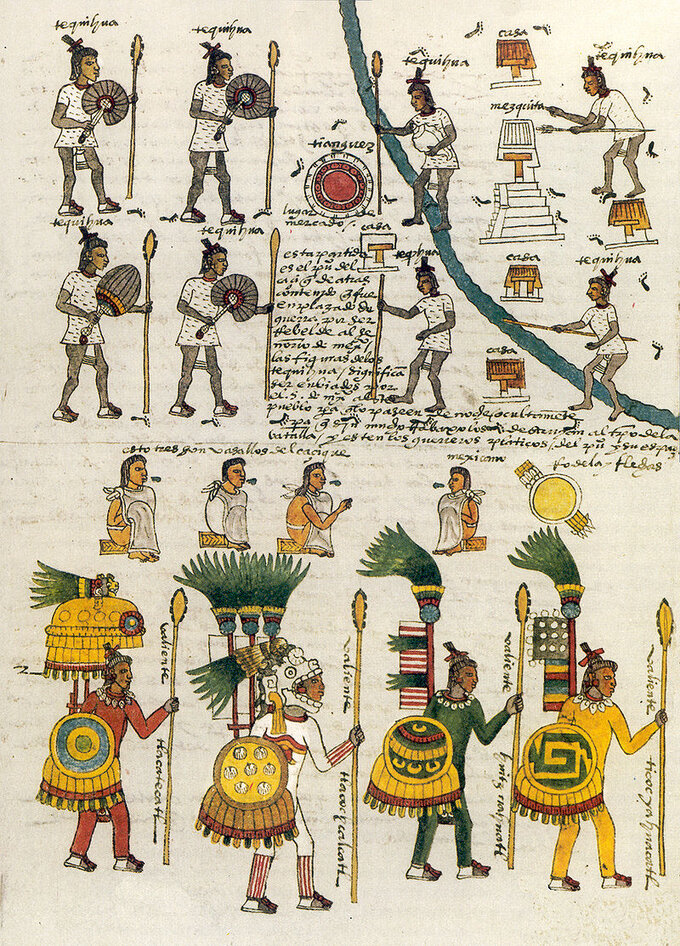 tequihua
tequihua
tequihua
casa
tequihua
mezquita
tianguez
lugar de
mercado /.
tequihua
tequihua
casa
tequihua
casa
tequihua
esta partida
es el pu° del
caciq de atras
contenido q fue
enplazado de
guerra por ser
Rebelde al se
norio de mexº
las figuras delos
tequihua / significā
ser enbiados por
el s. de mexº
pueblo pa q lo paseen de noche ocultamēte
casa
batalla / y esten los guerreros
esto tres son vasallos del cacique
mexicano
valiente
tlacatecatl
valiente
tlacochcalcatl
valiente
huiznahuatl
valiente
ticocyahuacatl